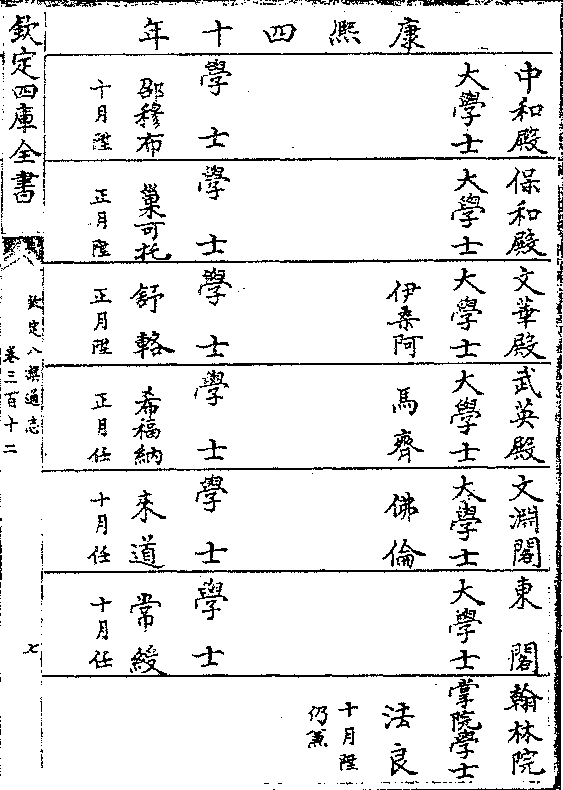 康熈四十年
中和殿
大學士
學士
邵穆布
十月陞
保和殿
大學士
學士
巢可托
正月陞
文華殿
大學士
伊桑阿
學士
舒輅
正月陞
武英殿
大學士
馬齊
學士
希福納
正月任
文淵閣
大學士
佛倫
學士
来道
十月任
東閣
大學士
學士
常綬
十月任
翰林院
掌院學士
法良
十月陞
仍兼
欽定四庫全書
欽定八旗通志
卷三百十二
七